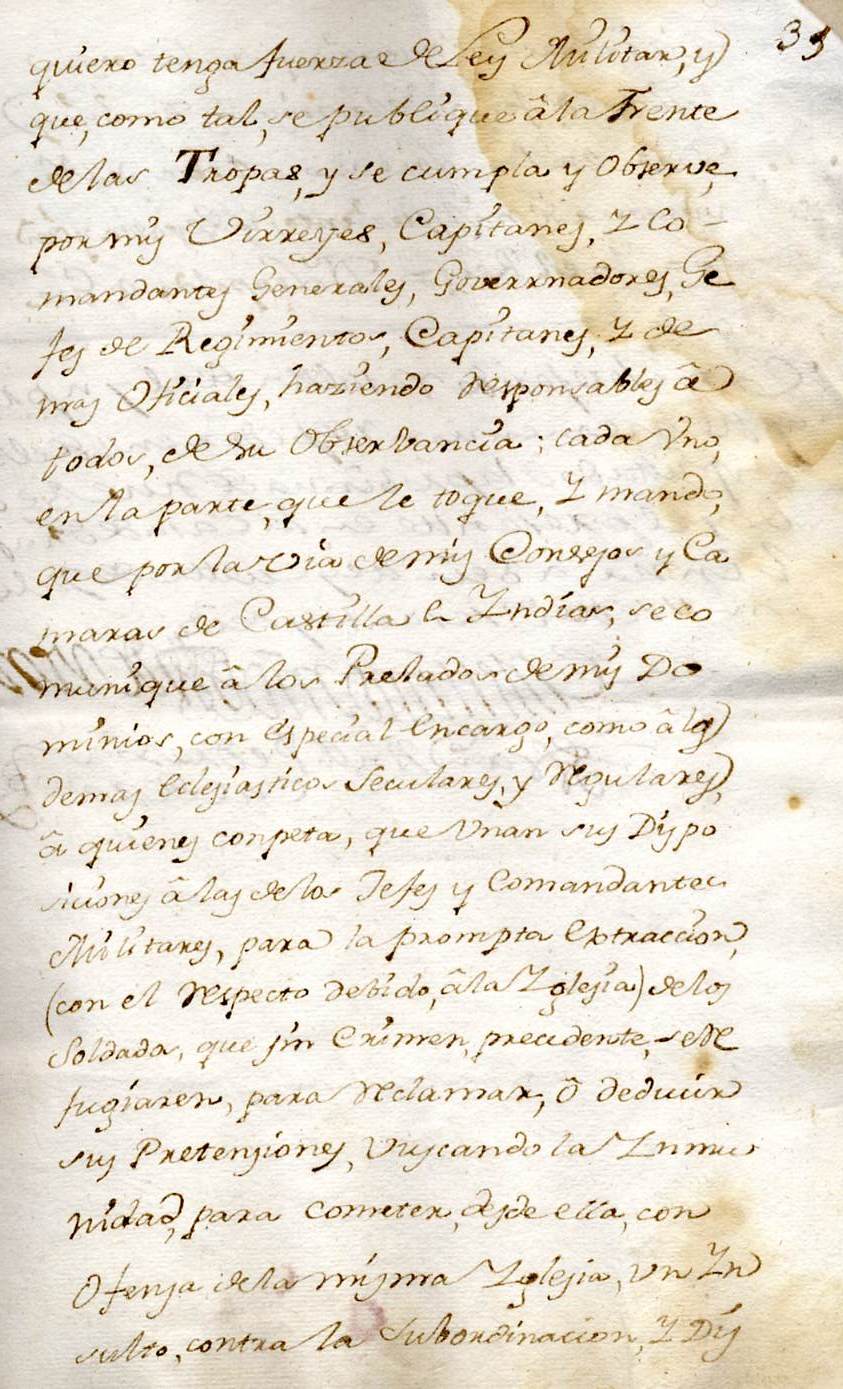 35
quiero tenga fuerza de Ley Militar, y
que, como tal, se publique â la Frente
de las Tropas, y se cumpla y Observe,
por mis Virreyes, Capitanes, Y Co-
mandantes Generales, Goverrnadores, Ge
fes de Regimientos, Capitanes, Y de
mas Oficiales, haziendo responsables â
todos, de su Observancia; cada Vno,
en la parte, que le toque, Y mando,
que por la via de mis Consejos y Ca
maras de Castilla e Yndias, se co
munique â los Prelados de mis Do
minios, con especial encargo, como â los
demas eclesiasticos Seculares, y Regulares,
â quienes conpeta, que Vnan sus Dispo
siciones â las de los Jefes y Comandantes
Militares, para la prompta extraccion,
(con el respecto debido, â la Yglesia) de los
Soldados, que sin Crimen, precidente, se re
fugiaren, para reclamar, ô deducir
sus Pretensiones, Vuscando la Ynmu
nidad, para cometer, desde ella, con
Ofensa de la misma Yglesia, Vn Yn
sulto, contra la Subordinacion, Y Dis